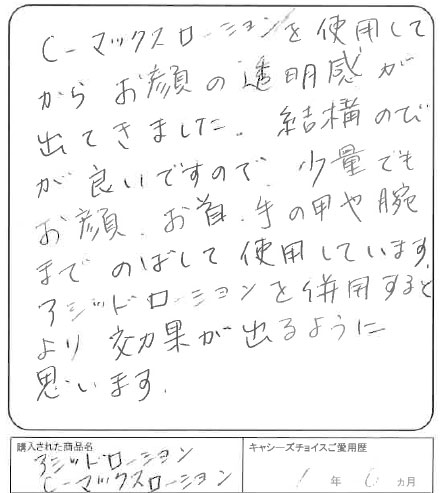 C-マックスローションを使用して
から お顔の透明感が
出てきました。結構のび
が良いですので、少量でも
お顔、お首、手の甲や腕
まで のばして使用しています。
アシッドローションを併用すると
より 効果が出るように
思います。
購入された商品名
アシッドローション
C-マックスローション
キャシーズチョイスご愛用歴
1年6ヵ月